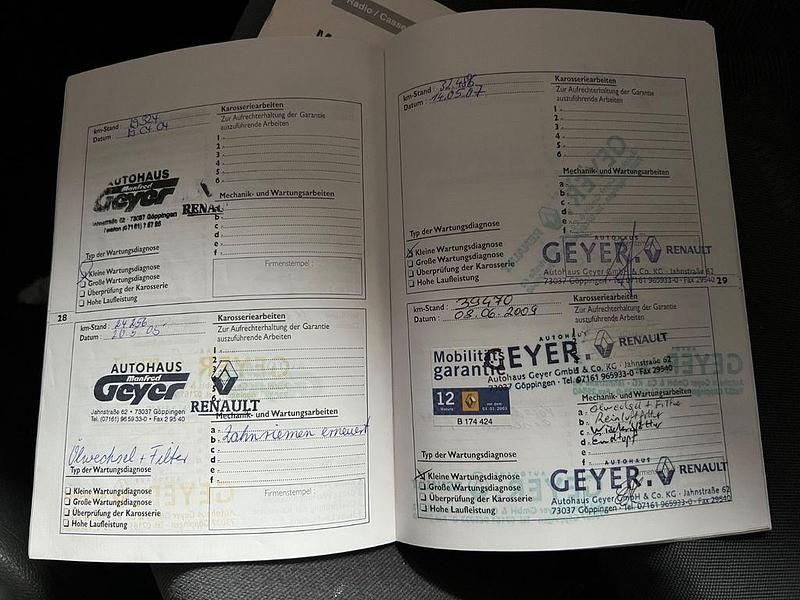 Radio / Casse
km-Stand :
Datum : 19.04.04
Karosseriearbeiten
Zur Aufrechterhaltung der Garantie
auszuführende Arbeiten
1 -
2 -
3 -
4 -
5 -
6 -
AUTOHAUS
Manfred
Geyer
Jahnstraße 62 · 73037 Göppingen
RENAU
Mechanik- und Wartungsarbeiten
a -
b -
c -
d -
e -
f -
Typ der Wartungsdiagnose
Kleine Wartungsdiagnose
Große Wartungsdiagnose
Überprüfung der Karosserie
Hohe Laufleistung
Firmenstempel :
28
km-Stand : 24.256
Datum :
Karosseriearbeiten
Zur Aufrechterhaltung der Garantie
auszuführende Arbeiten
1 -
2 -
3 -
4 -
5 -
6 -
AUTOHAUS
Manfred
Geyer
RENAULT
Jahnstraße 62 • 73037 Göppingen
Tel. (07161) 96 59 33-0 • Fax 2 95 40
Mechanik- und Wartungsarbeiten
a - Zahnriemen erneuert
b -
c -
d -
e -
f -
Ölwechsel + Filter
Typ der Wartungsdiagnose
Kleine Wartungsdiagnose
Große Wartungsdiagnose
Überprüfung der Karosserie
Hohe Laufleistung
Firmenstempel :
km-Stand : 32.486
Datum : 14.05.07
Karosseriearbeiten
Zur Aufrechterhaltung der Garantie
auszuführende Arbeiten
1 -
2 -
3 -
4 -
5 -
6 -
Mechanik- und Wartungsarbeiten
a -
b -
c -
d -
e -
f -
Typ der Wartungsdiagnose
Kleine Wartungsdiagnose
Große Wartungsdiagnose
Überprüfung der Karosserie
Hohe Laufleistung
AUTOHAUS
GEYER. RENAULT
Autohaus Geyer GmbH & Co. KG · Jahnstraße 62
73037 Göppingen · Tel. 07161 965933-0 · Fax 29540
29
km-Stand : 39470
Datum : 08.06.2009
Karosseriearbeiten
Zur Aufrechterhaltung der Garantie
auszuführende Arbeiten
Mobilitäts
garantie
12
B 174 424
AUTOHAUS
GEYER. RENAULT
Autohaus Geyer GmbH & Co. KG · Jahnstraße 62
73037 Göppingen · Tel. 07161 965933-0 · Fax 29540
Mechanik- und Wartungsarbeiten
a - Ölwechsel + Filter
b -
c -
d -
e -
f -
Typ der Wartungsdiagnose
Kleine Wartungsdiagnose
Große Wartungsdiagnose
Überprüfung der Karosserie
Hohe Laufleistung
AUTOHAUS
GEYER. RENAULT
Autohaus Geyer GmbH & Co. KG · Jahnstraße 62
73037 Göppingen · Tel. 07161 965933-0 · Fax 29540